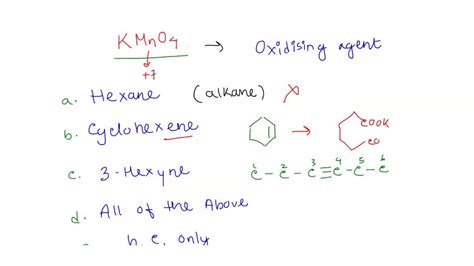 KMnO4 → Oxidising agent
+7
a. Hexane (alkane) ✗
b. Cyclohexene → COOK
CO
c. 3-Hexyne
1 2 3 4 5 6
C - C - C ≡ C - C - C
d. All of the Above
h.c. only